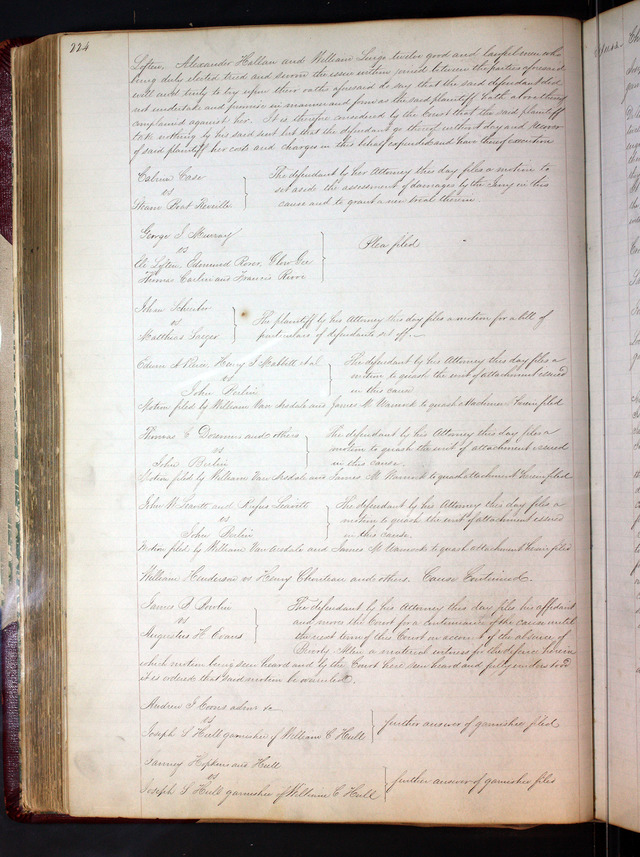 224
Alexander Hallan and William twelve good and lawful men who
being duly elected tried and sworn the issue within joined between the parties aforesaid
well and truly to try upon their oaths aforesaid do say that the said defendant did
not undertake and promise in manner and form as the said plaintiff hath above thereof
complained against her. It is therefore considered by the Court that the said plaintiff
take nothing by his said suit but that the defendant go thereof without day and recover
of said plaintiff her costs and charges in this behalf expended and have thereof execution
Calvin Case
vs
Steam Boat
The defendant by his Attorney this day files a motion to
set aside the assessment of damages by the Jury in this
cause and to grant a new trial therein
George J. Murray
vs
Edmund
Thomas Carlin and Francis
Plea filed
John
vs
Matthias
The plaintiff by his Attorney this day files a motion for a bill of
particulars of defendants set off.
Edwin A Henry S et al
vs
John
The defendant by his Attorney this day files a
motion to quash the writ of attachment issued
in this cause
Motion filed by William Van and James M. Warnock to quash attachment herein filed
Thomas and others
vs
John
The defendant by his Attorney this day files a
motion to quash the writ of attachment issued
in this cause.
Motion filed by William Van and James M. Warnock to quash attachment herein filed
John W Leavitt and Rufus Leavitt
vs
John
The defendant by his Attorney this day files a
motion to quash the writ of attachment issued
in this cause.
Motion filed by William Van and James M Warnock to quash attachment herein filed
William Henderson vs Henry Chouteau and others. Cause Continued.
James
vs
Augustus H Evans
The defendant by his Attorney this day files his affidavit
and moves the Court for a Continuance of the cause until
the next term of this Court on account of the absence of
a material witness for the defence herein
which motion being seen heard and by the Court here seen heard and fully understood
it is ordered that said motion be
Andrew J admr &c
vs
Joseph S Hull garnishee of William C Hull
further answer of garnishee filed
Hopkins
vs
Joseph S Hull garnishee of William C Hull
further answer of garnishee filed